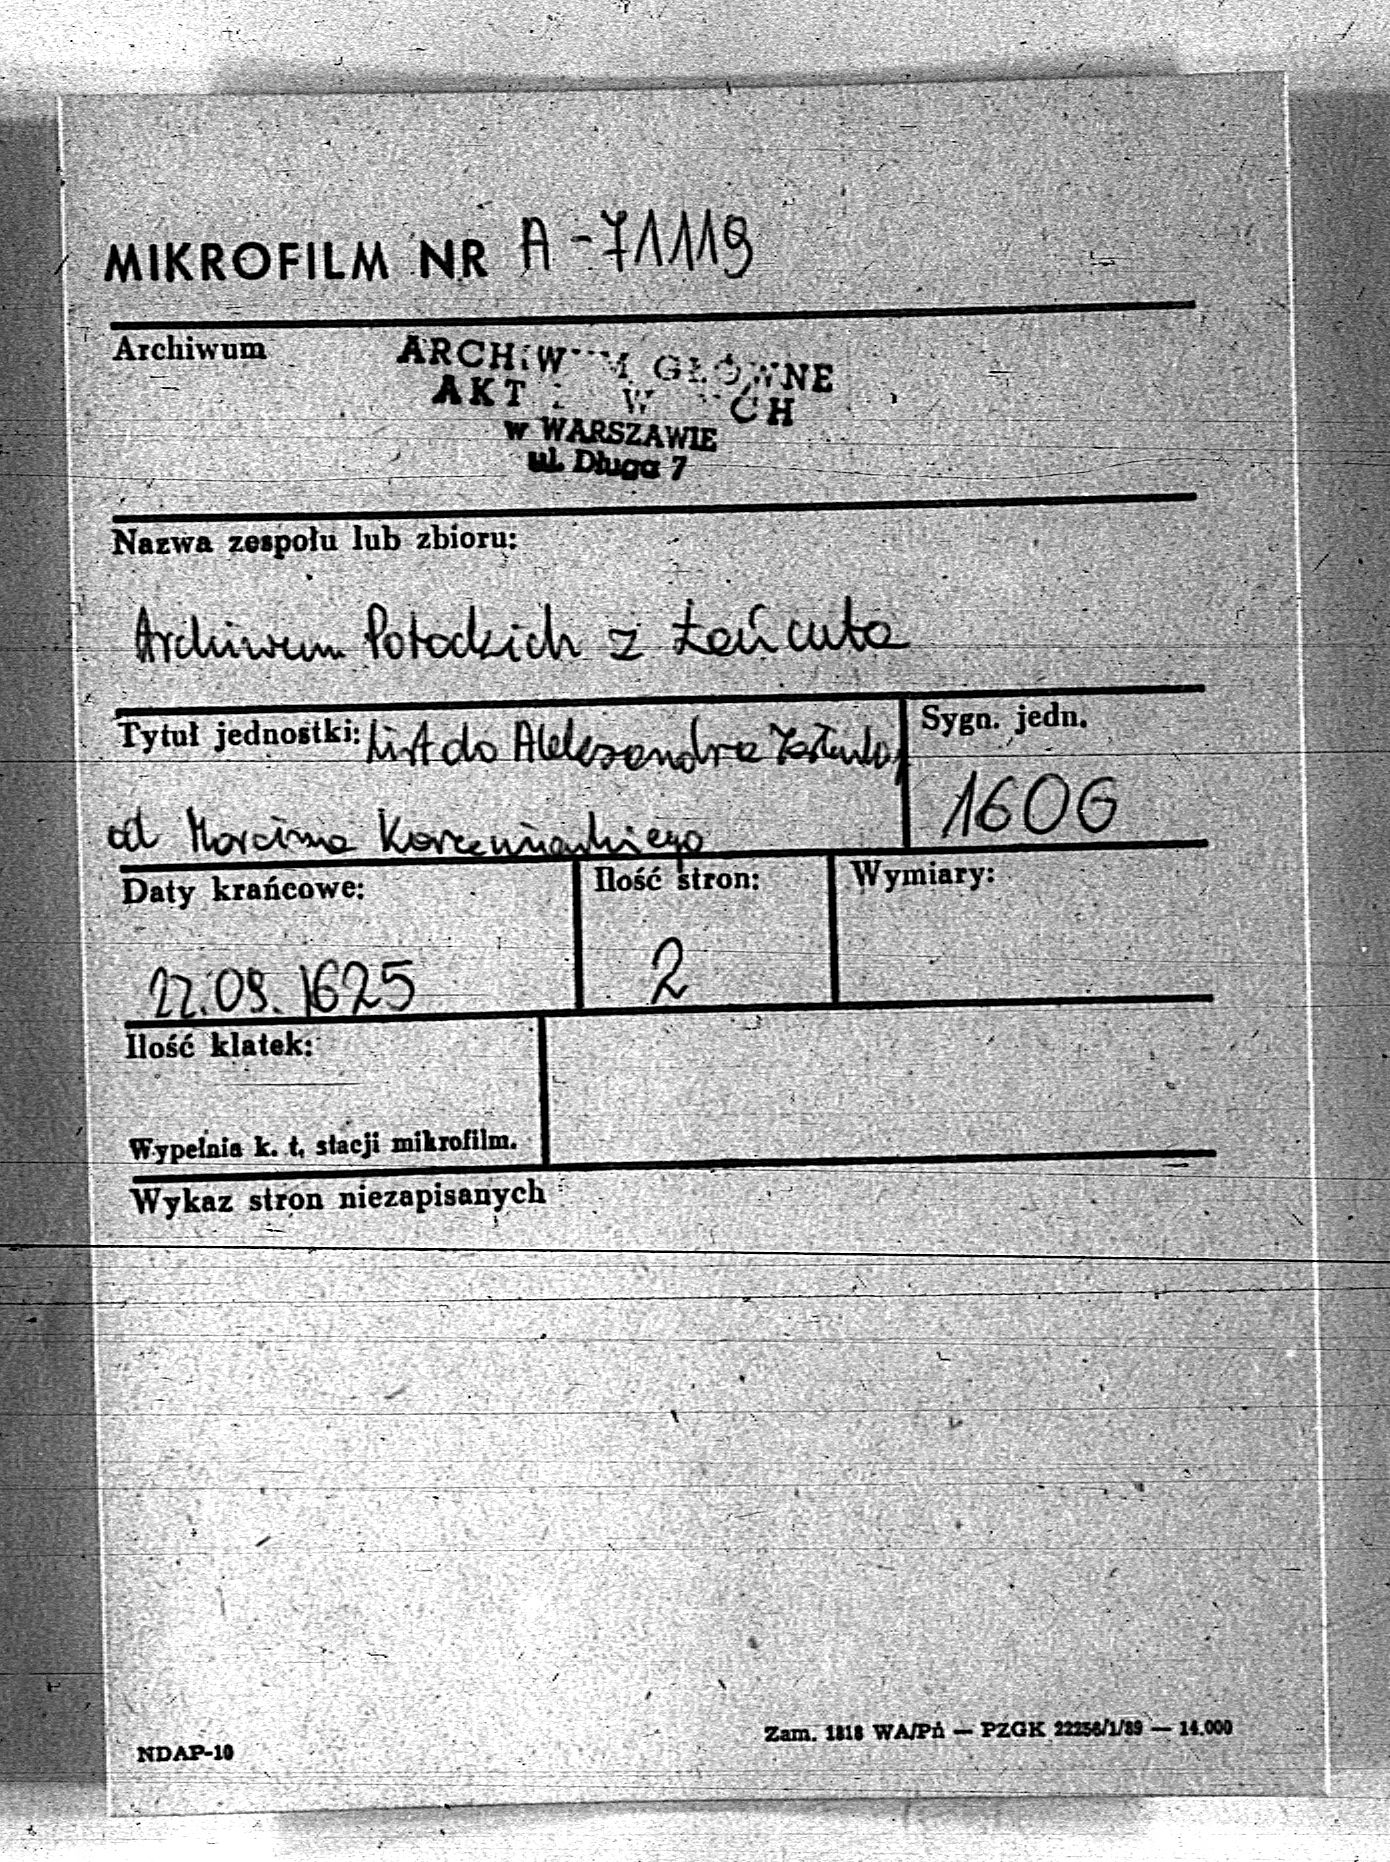 MIKROFILM NR A-71119
Archiwum
ARCHIWUM GŁÓWNE
AKT DAWNYCH
w WARSZAWIE
ul. Długa 7
Nazwa zespołu lub zbioru:
Archiwum Potockich z Łańcuta
Tytuł jednostki: List do Aleksandra
Sygn. jedn.
1606
od Marcina Korzeniowskiego
Daty krańcowe:
Ilość stron:
Wymiary:
22.09.1625
2
Ilość klatek:
Wypełnia k. t. stacji mikrofilm.
Wykaz stron niezapisanych
Zam. 1818 WA/Pń — PZGK 22256/1/89 — 14.000
NDAP-10